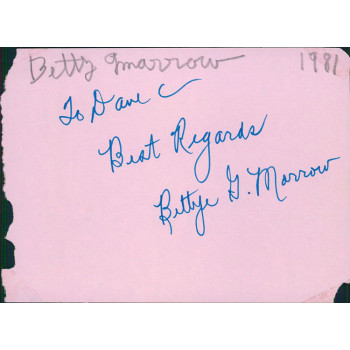 Betty Gmarrow 1981
To Dave
Best Regards
Bettye G. Morrow